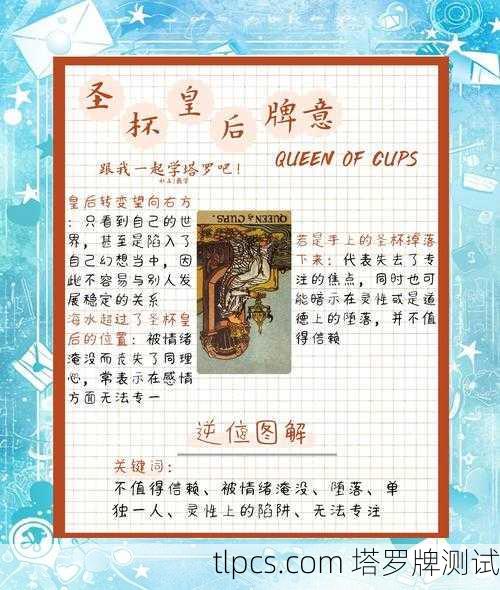 圣杯皇后牌意
QUEEN OF CUPS
跟我一起学塔罗吧！
皇后转变望向右方
：只看到自己的世
界，甚至是陷入了
自己幻想当中，因
此不容易与别人发
展稳定的关系
海水超过了圣杯皇
后的位置：被情绪
淹没而丧失了同理
心，常表示在感情
方面无法专一
QUEEN of CUPS.
若是手上的圣杯掉落
下来：代表失去了专
注的焦点，同时也可
能暗示在灵性或是道
德上的堕落，并不值
得信赖
逆位图解
关键词：
不值得信赖、被情绪淹没、堕落、单
独一人、灵性上的陷阱、无法专注
tlpcs.com 塔罗牌测试